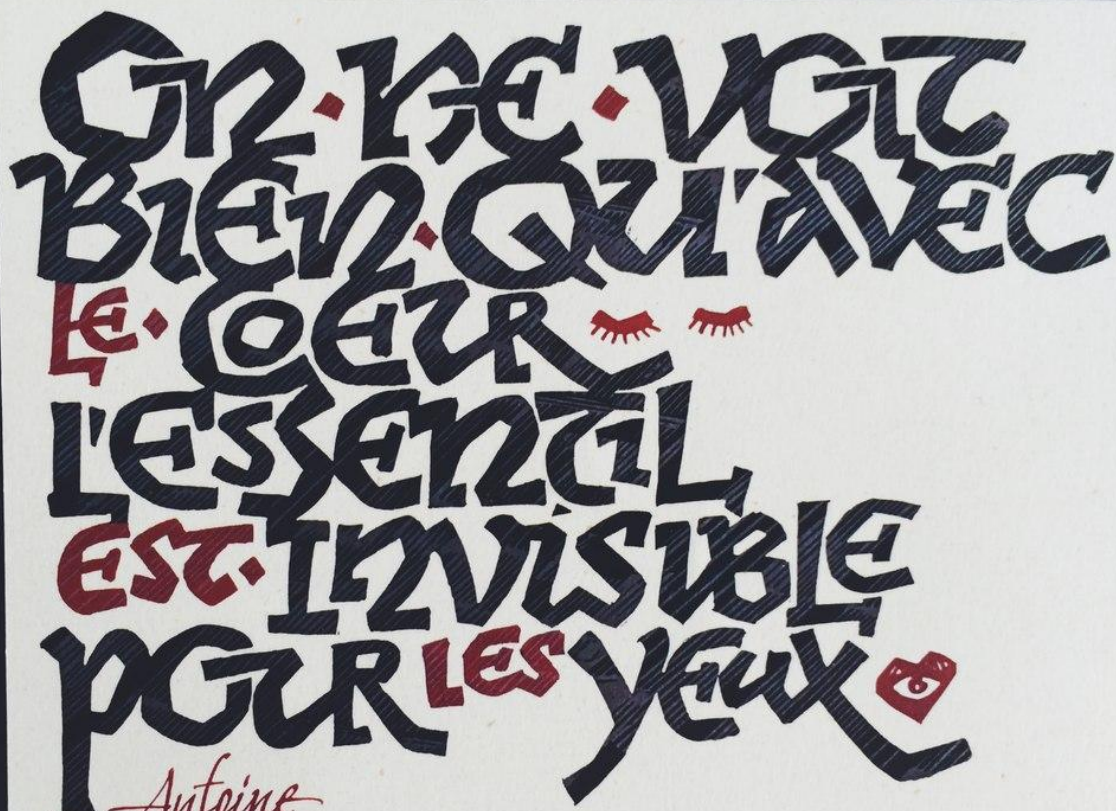 On · ne · voit
Bien · Qu'avec
Le · Coeur
L'Essentiel
Est · Invisible
pour les yeux
Antoine